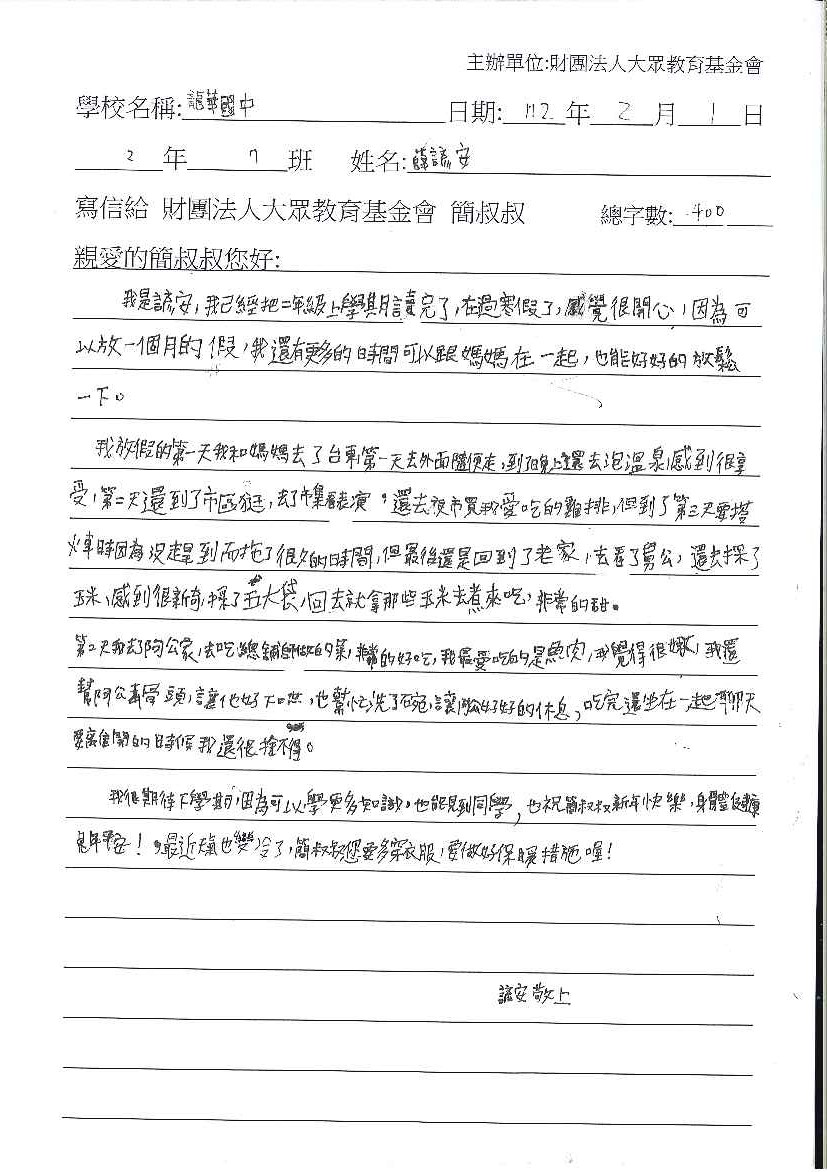 主辦單位:財團法人大眾教育基金會
學校名稱:龍華國中 日期: 112 年 2 月 1 日
2 年 7 班 姓名:薛諺安
寫信給 財團法人大眾教育基金會 簡叔叔 總字數: 400
親愛的簡叔叔您好:
我是諺安,我已經把二年級上學期讀完了,在過寒假了,感覺很開心,因為可
以放一個月的假,我還有更多的時間可以跟媽媽在一起,也能好好的放鬆
一下。
我放假的第一天我和媽媽去了台東第一天去外面隨便走,到了晚上還去泡溫泉感到很享
受,第二天還到了市區逛,去了市集看表演。還去夜市買我愛吃的雞排,但到了第三天要搭
火車時因為沒趕到而拖了很久的時間,但最後還是回到了老家,去看了舅公,還去採了
玉米,感到很新奇,採了五大袋,回去就拿那些玉米去煮來吃,非常的甜。
第二天我去了阿公家,去吃總舖師做的菜,非常的好吃,我最愛吃的是魚肉,我覺得很嫩,我還
幫阿公弄骨頭,讓他好下口,也幫忙洗了碗,讓阿公好好的休息,吃完還坐在一起聊天
要離開的時候我還很捨不得。
我很期待下學期,因為可以學更多知識,也能見到同學,也祝簡叔叔新年快樂,身體健康
兔年平安!,最近天氣也變冷了,簡叔叔您要多穿衣服,要做好保暖措施喔!
諺安敬上